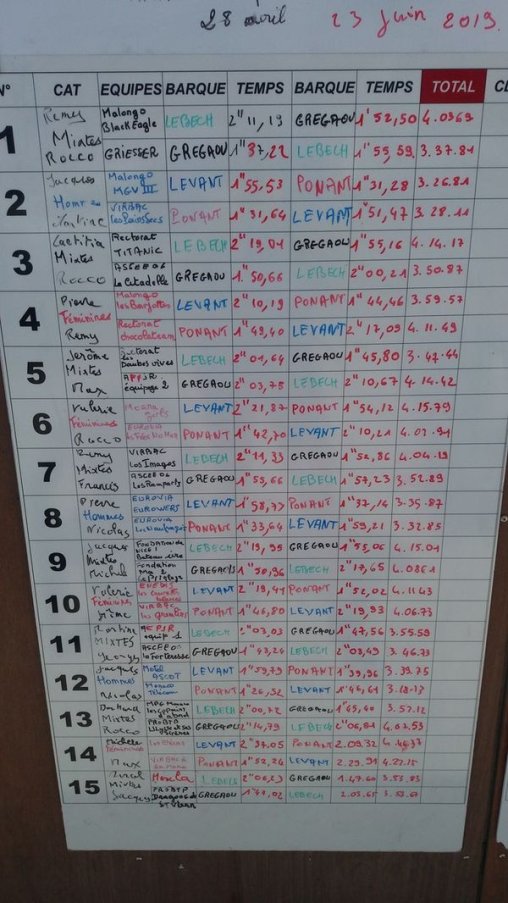 28 avril 23 juin 2019.
N° CAT EQUIPES BARQUE TEMPS BARQUE TEMPS TOTAL CL
1 Remy Malongo BlackEagle LEBECH 2"11,19 GREGAOU 1"52,50 4.0369
Mixtes
Rocco GRIESSER GREGAOU 1"37,22 LEBECH 1"55,59 3.37.81
2 Jacques Malongo MGV III LEVANT 1"55,53 PONANT 1"31,28 3.26.81
VIRBAC PONANT 1"31,64 LEVANT 1"51,47 3.28.11
3 Laetitia Rectorat TITANIC LEBECH 2"19,01 GREGAOU 1"55,16 4.14.17
Mixtes
Rocco ASCEE 06 La Citadelle GREGAOU 1"50,66 LEBECH 2"00,21 3.50.87
4 Pierre Malongo les Barjottes LEVANT 2"10,19 PONANT 1"44,46 3.59.57
Féminines
Remy Rectorat chocolateam PONANT 1"49,40 LEVANT 2"17,09 4.11.49
5 Jérôme LEBECH 2"01,64 GREGAOU 1"45,80 3.47.44
Mixtes
Max APPSR équipage 2 GREGAOU 2"03,75 LEBECH 2"10,67 4.14.42
6 Valerie LEVANT 2"21,87 PONANT 1"54,12 4.15.79
Féminines
Rocco EUROVIA PONANT 1"42,70 LEVANT 2"10,21
7 Remy VIRBAC Los Imagos LEBECH 2"11,33 GREGAOU 1"52,86 4.04.19
Mixtes
Francis ASCEE 06 Los Ramparts GREGAOU 1"55,66 LEBECH 1"57,23 3.52.89
8 Pierre EUROVIA EUROWERS LEVANT 1"58,73 PONANT 1"37,14 3.35.87
Hommes
Nicolas EUROVIA PONANT 1"33,64 LEVANT 1"59,21 3.32.85
9 Jacques FONDATION DE NICE 1 LEBECH 2"19,95 GREGAOU 1"55,06 4.15.01
Mixtes
Michel Fondation Nice 2 1"50,96 LEBECH 2"17,65 4.0861
10 Valerie ENEDIS LEVANT 2"19,41 PONANT 1"52,02 4.11.43
Féminines
Jérôme VIRBAC PONANT 1"46,80 LEVANT 2"19,93 4.06.73
11 Martine équip. 1 LEBECH 2"03,03 GREGAOU 1"47,56 3.55.59
MIXTES
Georges ASCEE 06 La Forteresse GREGAOU 1"43,26 LEBECH 2"03,49 3.46.73
12 Jacques Motel ASCOT LEVANT 1"59,79 PONANT 1"39,96 3.39.75
Hommes
Nicolas Monaco Télécom PONANT 1"26,52 LEVANT 1"46,61 3.13.13
13 LEBECH 2"00,72 GREGAOU 3.57.12
Mixtes
Rocco PROBTP GREGAOU 2"14,79 LEBECH 2"06,81
14 Michèle LEVANT 2"37,05 PONANT 2.09,32
Féminines
Max VIRBAC PONANT 1"52,24 LEVANT 2.29.91 4.22.15
15 Mosela LEBECH 2"06,23 GREGAOU 1.47.60 3.53.83
Mixtes
Jacques PROBTP Dragons de St Urban GREGAOU 1"41,02 LEBECH 2.05.65